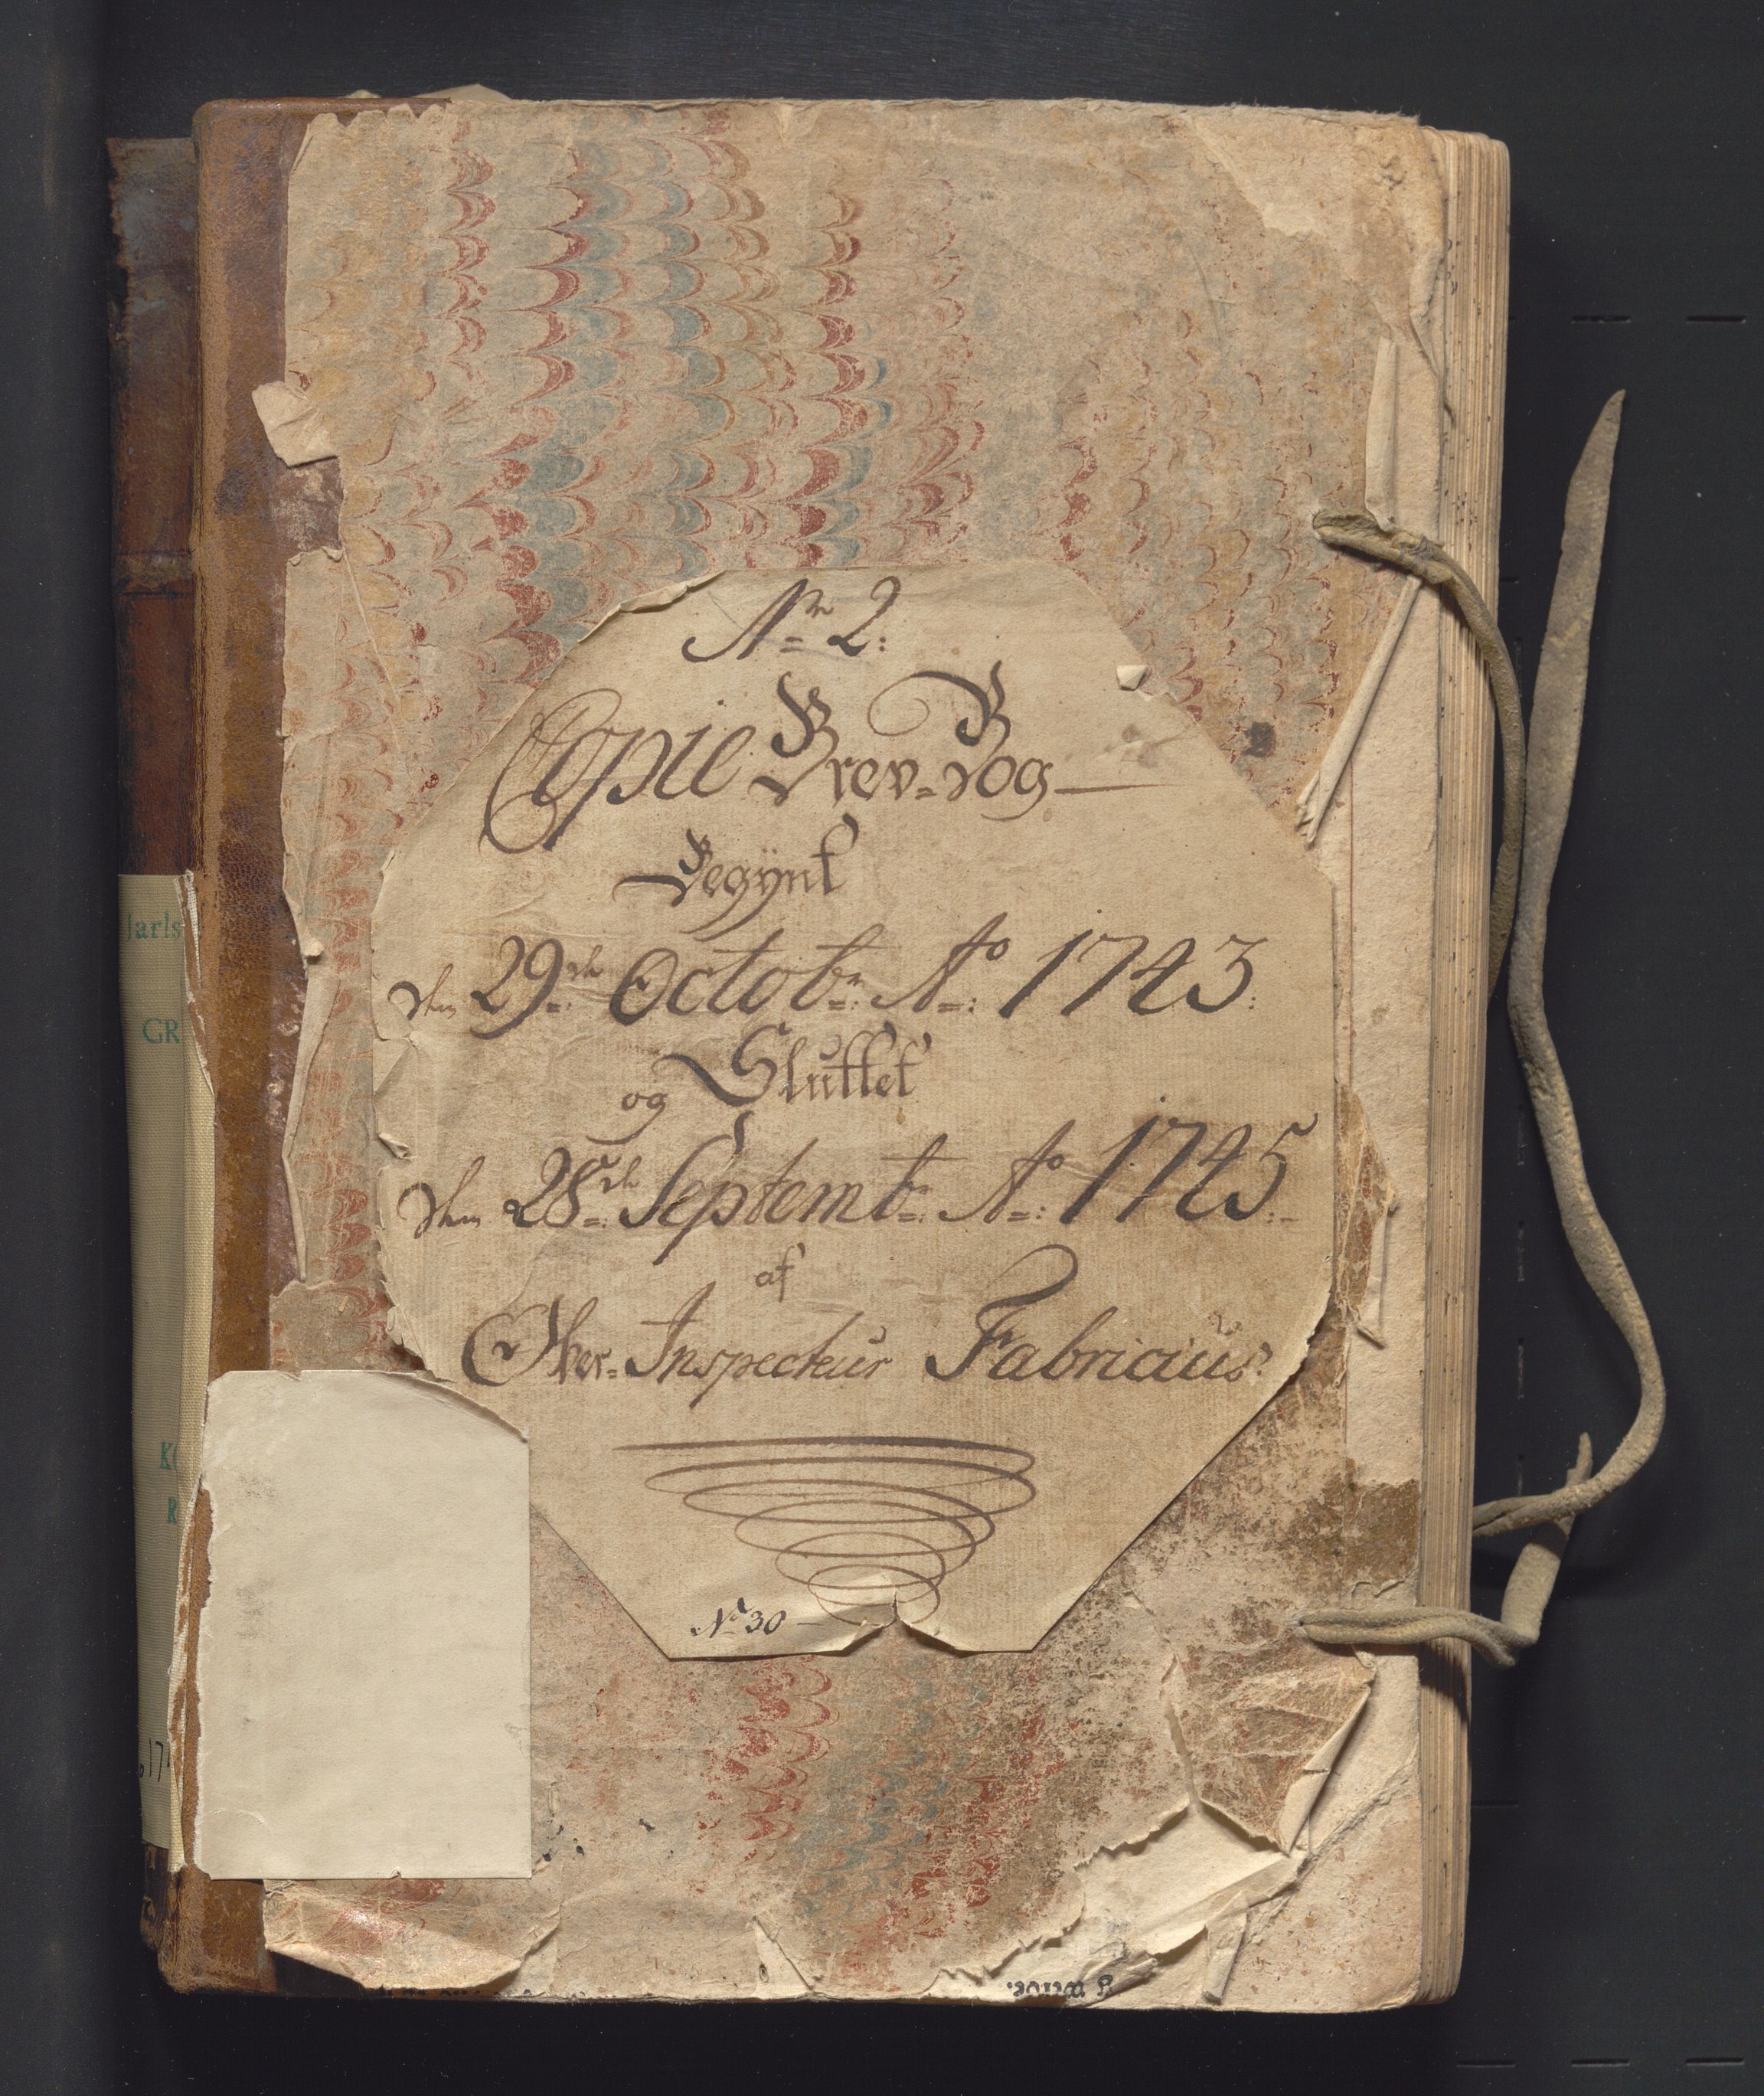 Nr 2:
Copie Brev-Bog
Begÿnt
den 29de Octobr: Ao: 1743:
og Sluttet
den 28de Septembr: Ao: 1745:-
af
Ober-Inspecteur Fabricius:
No 30
Jarls
GR
K
R
17